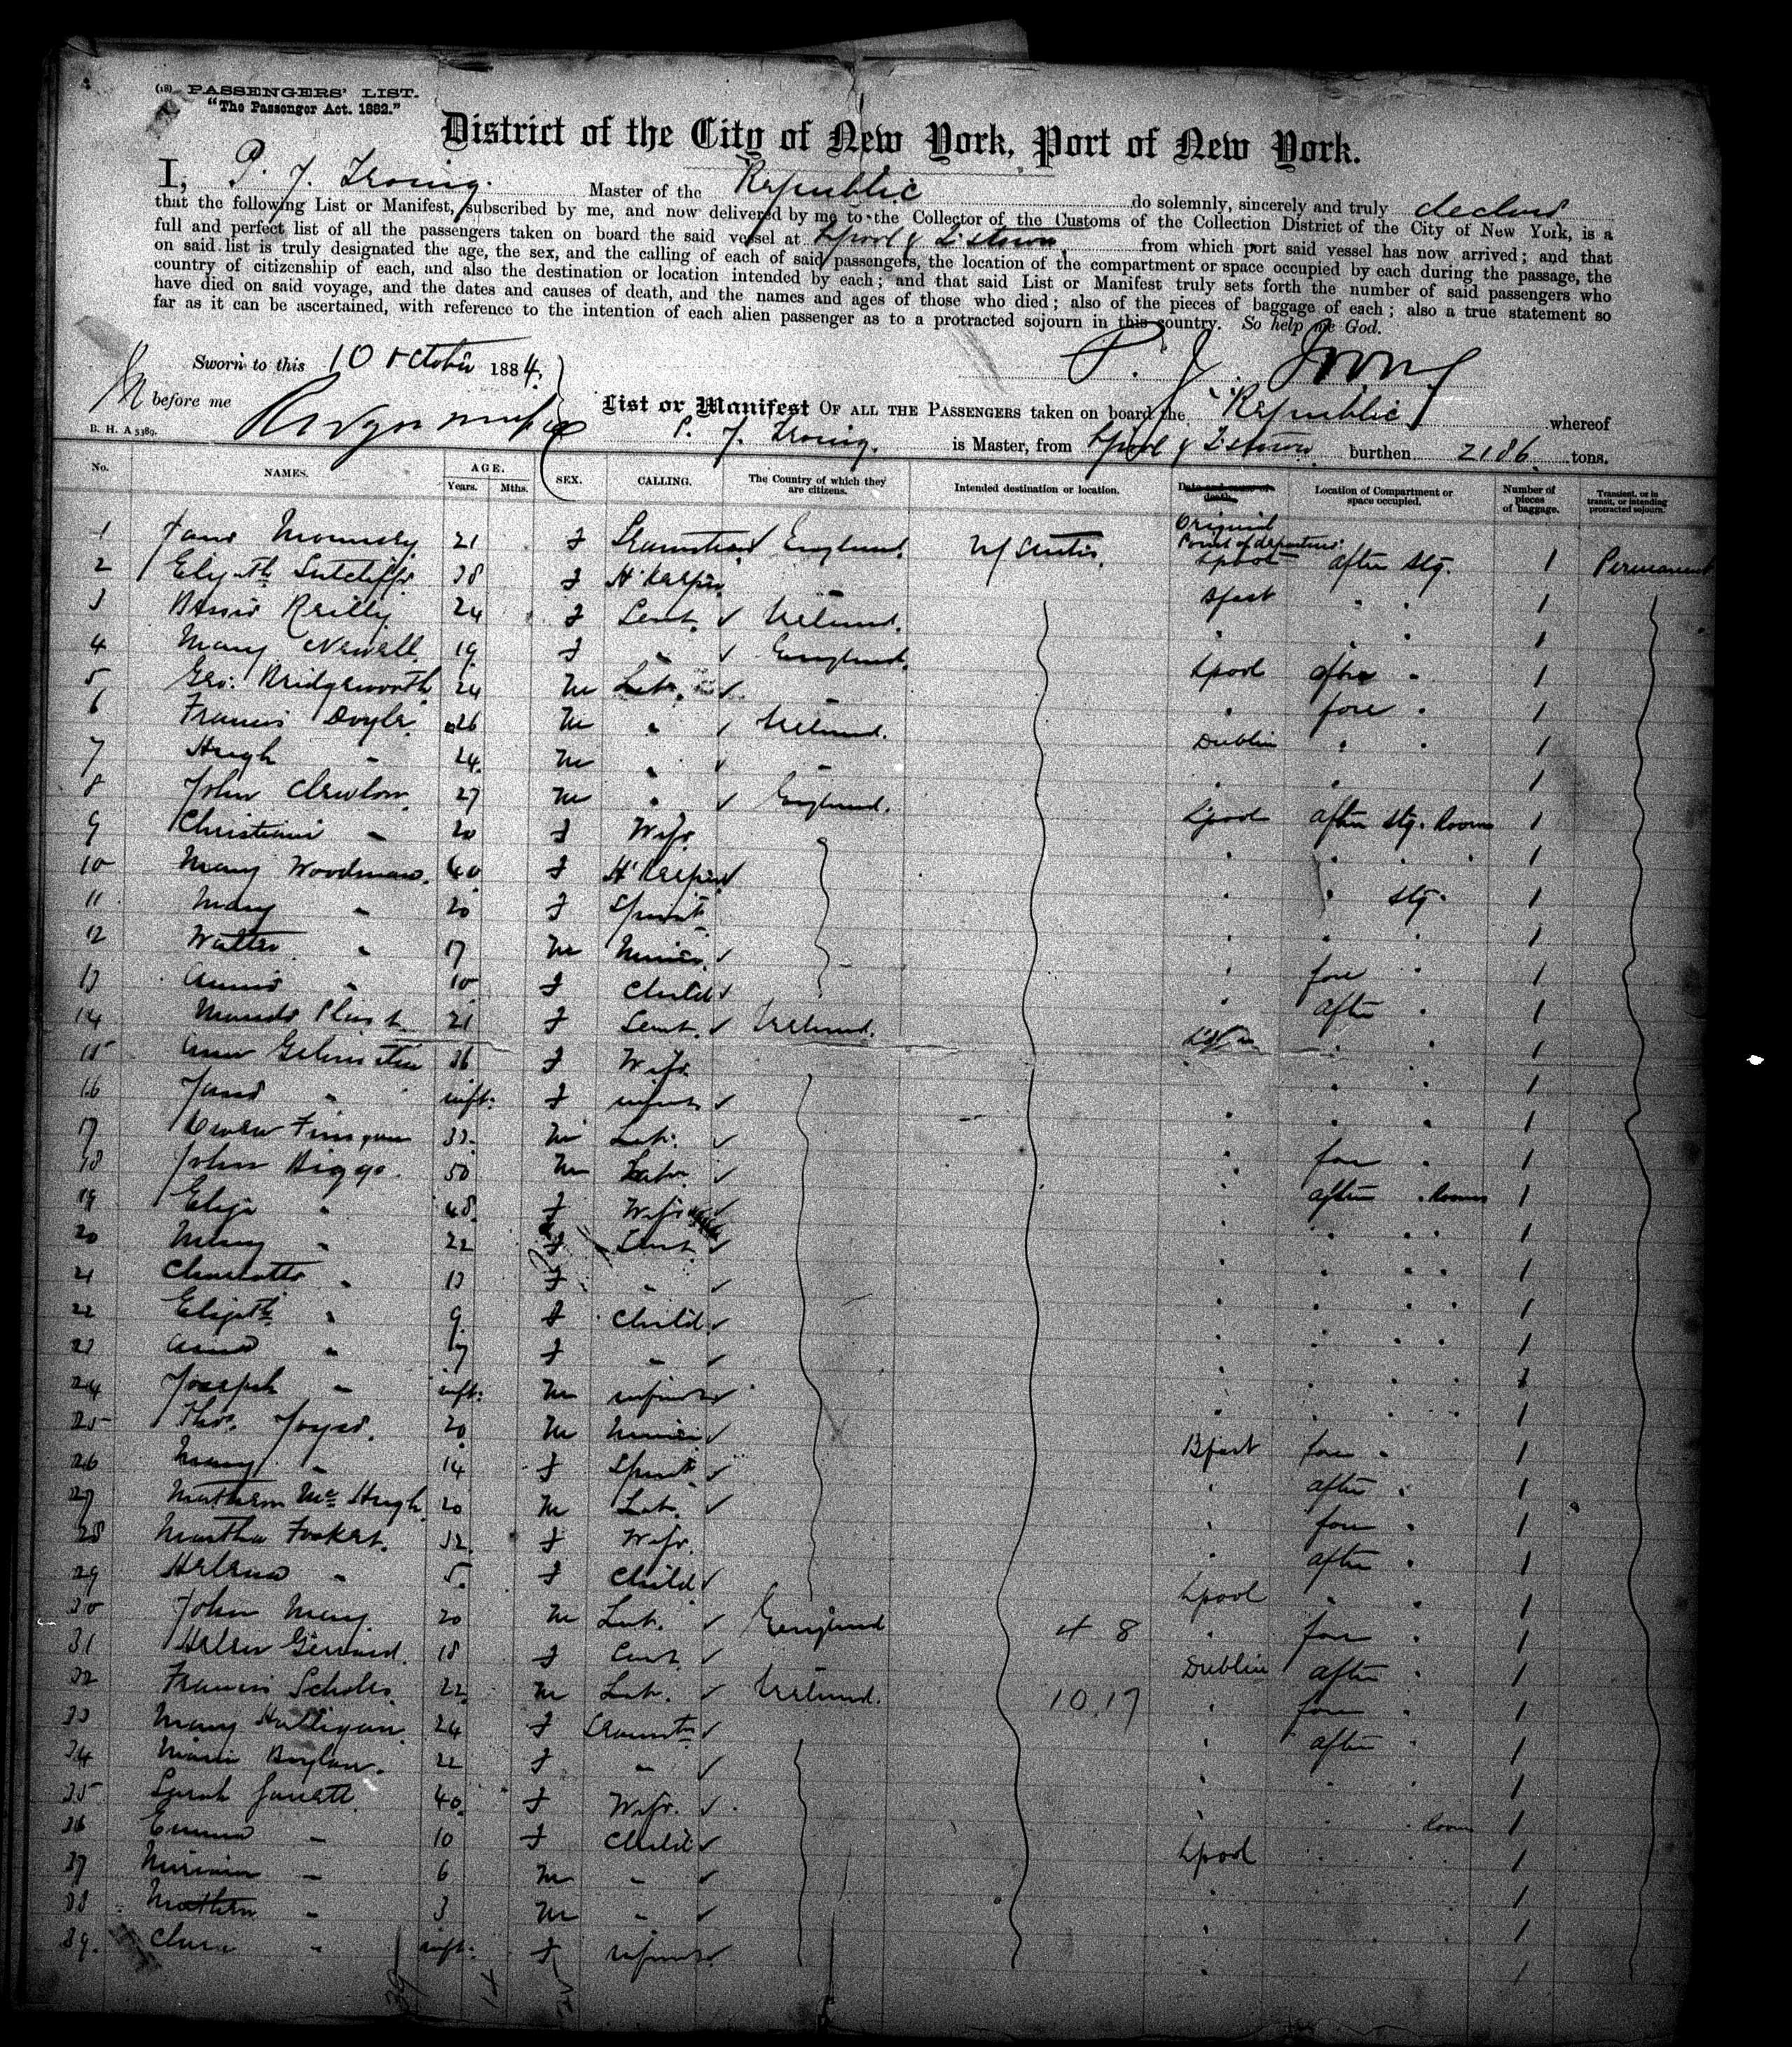 (18) PASSENGERS' LIST.
"The Passenger Act. 1882."
District of the City of New York, Port of New York.
I, P. J. Irving. Master of the Republic do solemnly, sincerely and truly declare
that the following List or Manifest, subscribed by me, and now delivered by me to the Collector of the Customs of the Collection District of the City of New York, is a
full and perfect list of all the passengers taken on board the said vessel at Lpool & Q'stown from which port said vessel has now arrived; and that
on said list is truly designated the age, the sex, and the calling of each of said passengers, the location of the compartment or space occupied by each during the passage, the
country of citizenship of each, and also the destination or location intended by each; and that said List or Manifest truly sets forth the number of said passengers who
have died on said voyage, and the dates and causes of death, and the names and ages of those who died; also of the pieces of baggage of each; also a true statement so
far as it can be ascertained, with reference to the intention of each alien passenger as to a protracted sojourn in this country. So help me God.
Sworn to this 10 October 1884. P. J. Irving
before me
B. H. A 5389.
List or Manifest OF ALL THE PASSENGERS taken on board the Republic whereof
P. J. Irving. is Master, from Lpool & Q'stown burthen 2186 tons.
No. NAMES. AGE. Years. Mths. SEX. CALLING. The Country of which they are citizens. Intended destination or location. Date and cause of death. Location of Compartment or space occupied. Number of pieces of baggage. Transient, or in transit, or intending protracted sojourn.
Original
Point of departure
1 21 f England U/States Lpool after Stg. 1 Permanent
2 Elizth Sutcliffe 38 f H'Keeper " Bfast " " 1
3 Reilly 24 f Servt. Ireland. " " " 1
4 Mary Newell 19 f " England. Lpool after " 1
5 Geo: Bridgeworth 24 m Labr. " " fore " 1
6 Francis Doyle 26 m " Ireland. Dublin " " 1
7 Hugh " 24 m " " " " 1
8 John Clewlow 27 m " England. Lpool after Stg. Room 1
9 Christiana " 20 f Wife " " " " 1
10 Mary Woodman 40 f H'Keeper " " Stg. 1
11 Mary " 20 f Spinst. " " 1
12 Walter " 17 m Miner " fore " 1
13 Annie " 10 f Child " after " 1
14 21 f Servt. Ireland. " " 1
15 Ann 36 f Wife " " 1
16 Jane " inft. f infant " " " 1
17 Finigan m Lab. " fore " 1
18 John Biggs 50 m Labr. " after " Room 1
19 Eliza " 48 f Wife " " " 1
20 Mary " 22 f Servt. " " " " 1
21 Charlotte " f " " " " " 1
22 Elizth " 9 f Child " " " " 1
23 Annie " 7 f " " " " " 1
24 Joseph " inft. m infant " " " " 1
25 Thos. Joyce 20 m Miner Bfast fore " 1
26 Mary " 14 f Spinst. " after " 1
27 Mc Hugh 20 m Lab. " fore " 1
28 Martha 32 f Wife " after " 1
29 Helena " 5 f Child Lpool " " 1
30 John 20 m Lab. England 4 8 " fore " 1
31 Helen Gerrard. 18 f Servt. Dublin after " 1
32 Francis Scholes 22 m Lab. Ireland. 10.17 " fore " 1
33 Mary Halligan 24 f " after " 1
34 Maria Boylan 22 f " " 1
35 Sarah 40 f Wife. " Room 1
36 Emma " 10 f Child Lpool " " " 1
37 " 6 m " " 1
38 " 3 m " " 1
39. Clara " inft. f infant " 1